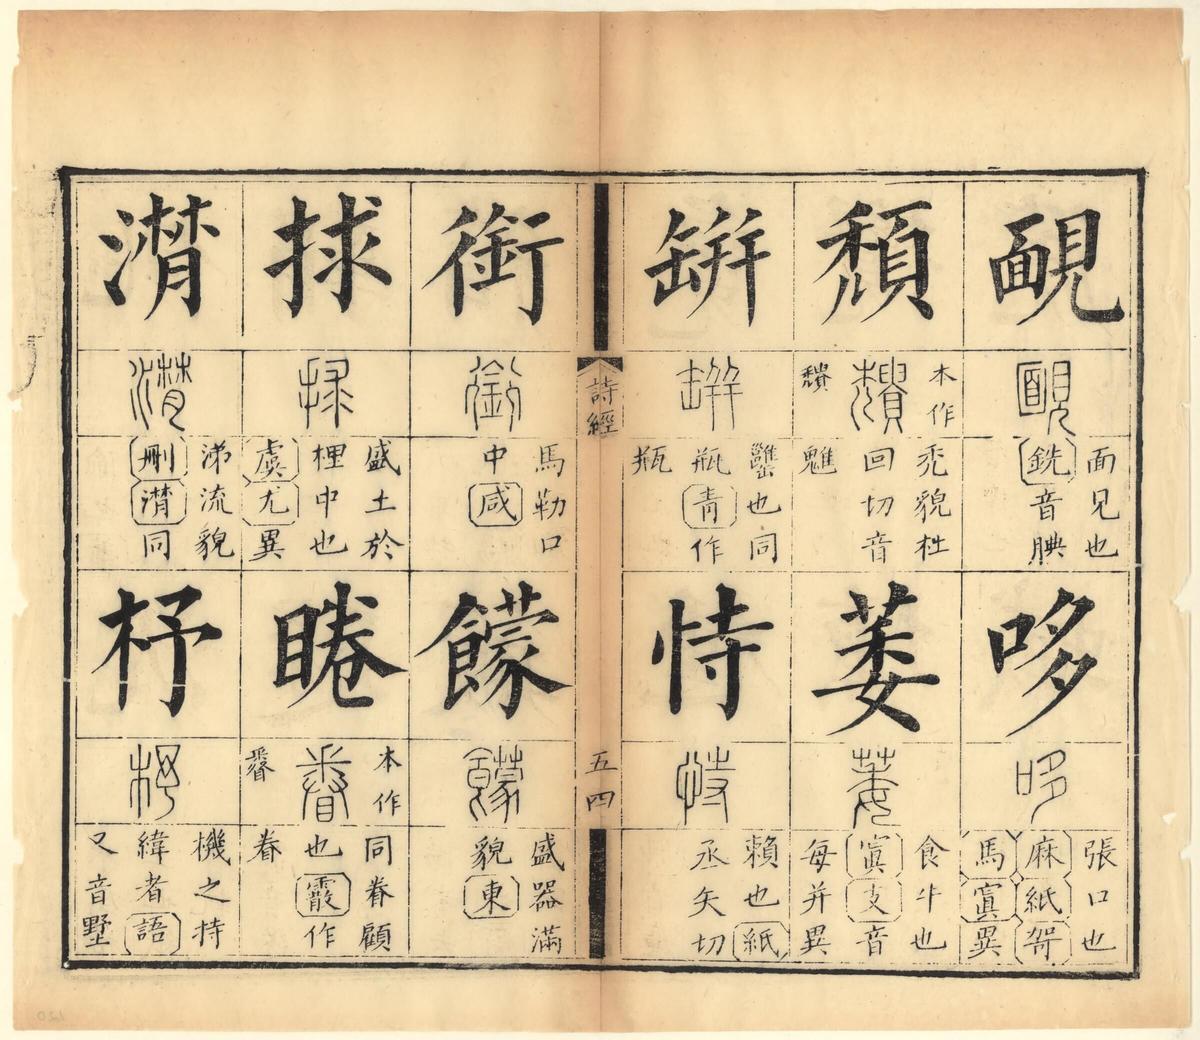 靦
靦
面見也
銑音腆
哆
哆
張口也
麻紙哿
馬寘異
頹
本作
穨
穨
禿貌杜
回切音
魋
萎
萎
食牛也
寘支音
每并異
缾
缾
罋也同
瓶青作
甁
恃
恃
賴也紙
丞矢切
詩經
五四
銜
銜
馬勒口
中咸
饛
饛
盛器滿
貌東
捄
捄
盛土於
梩中也
虞尤異
睠
本作
同眷顧
也霰作
眷
潸
潸
涕流貌
刪潸同
杼
杼
機之持
緯者語
又音墅